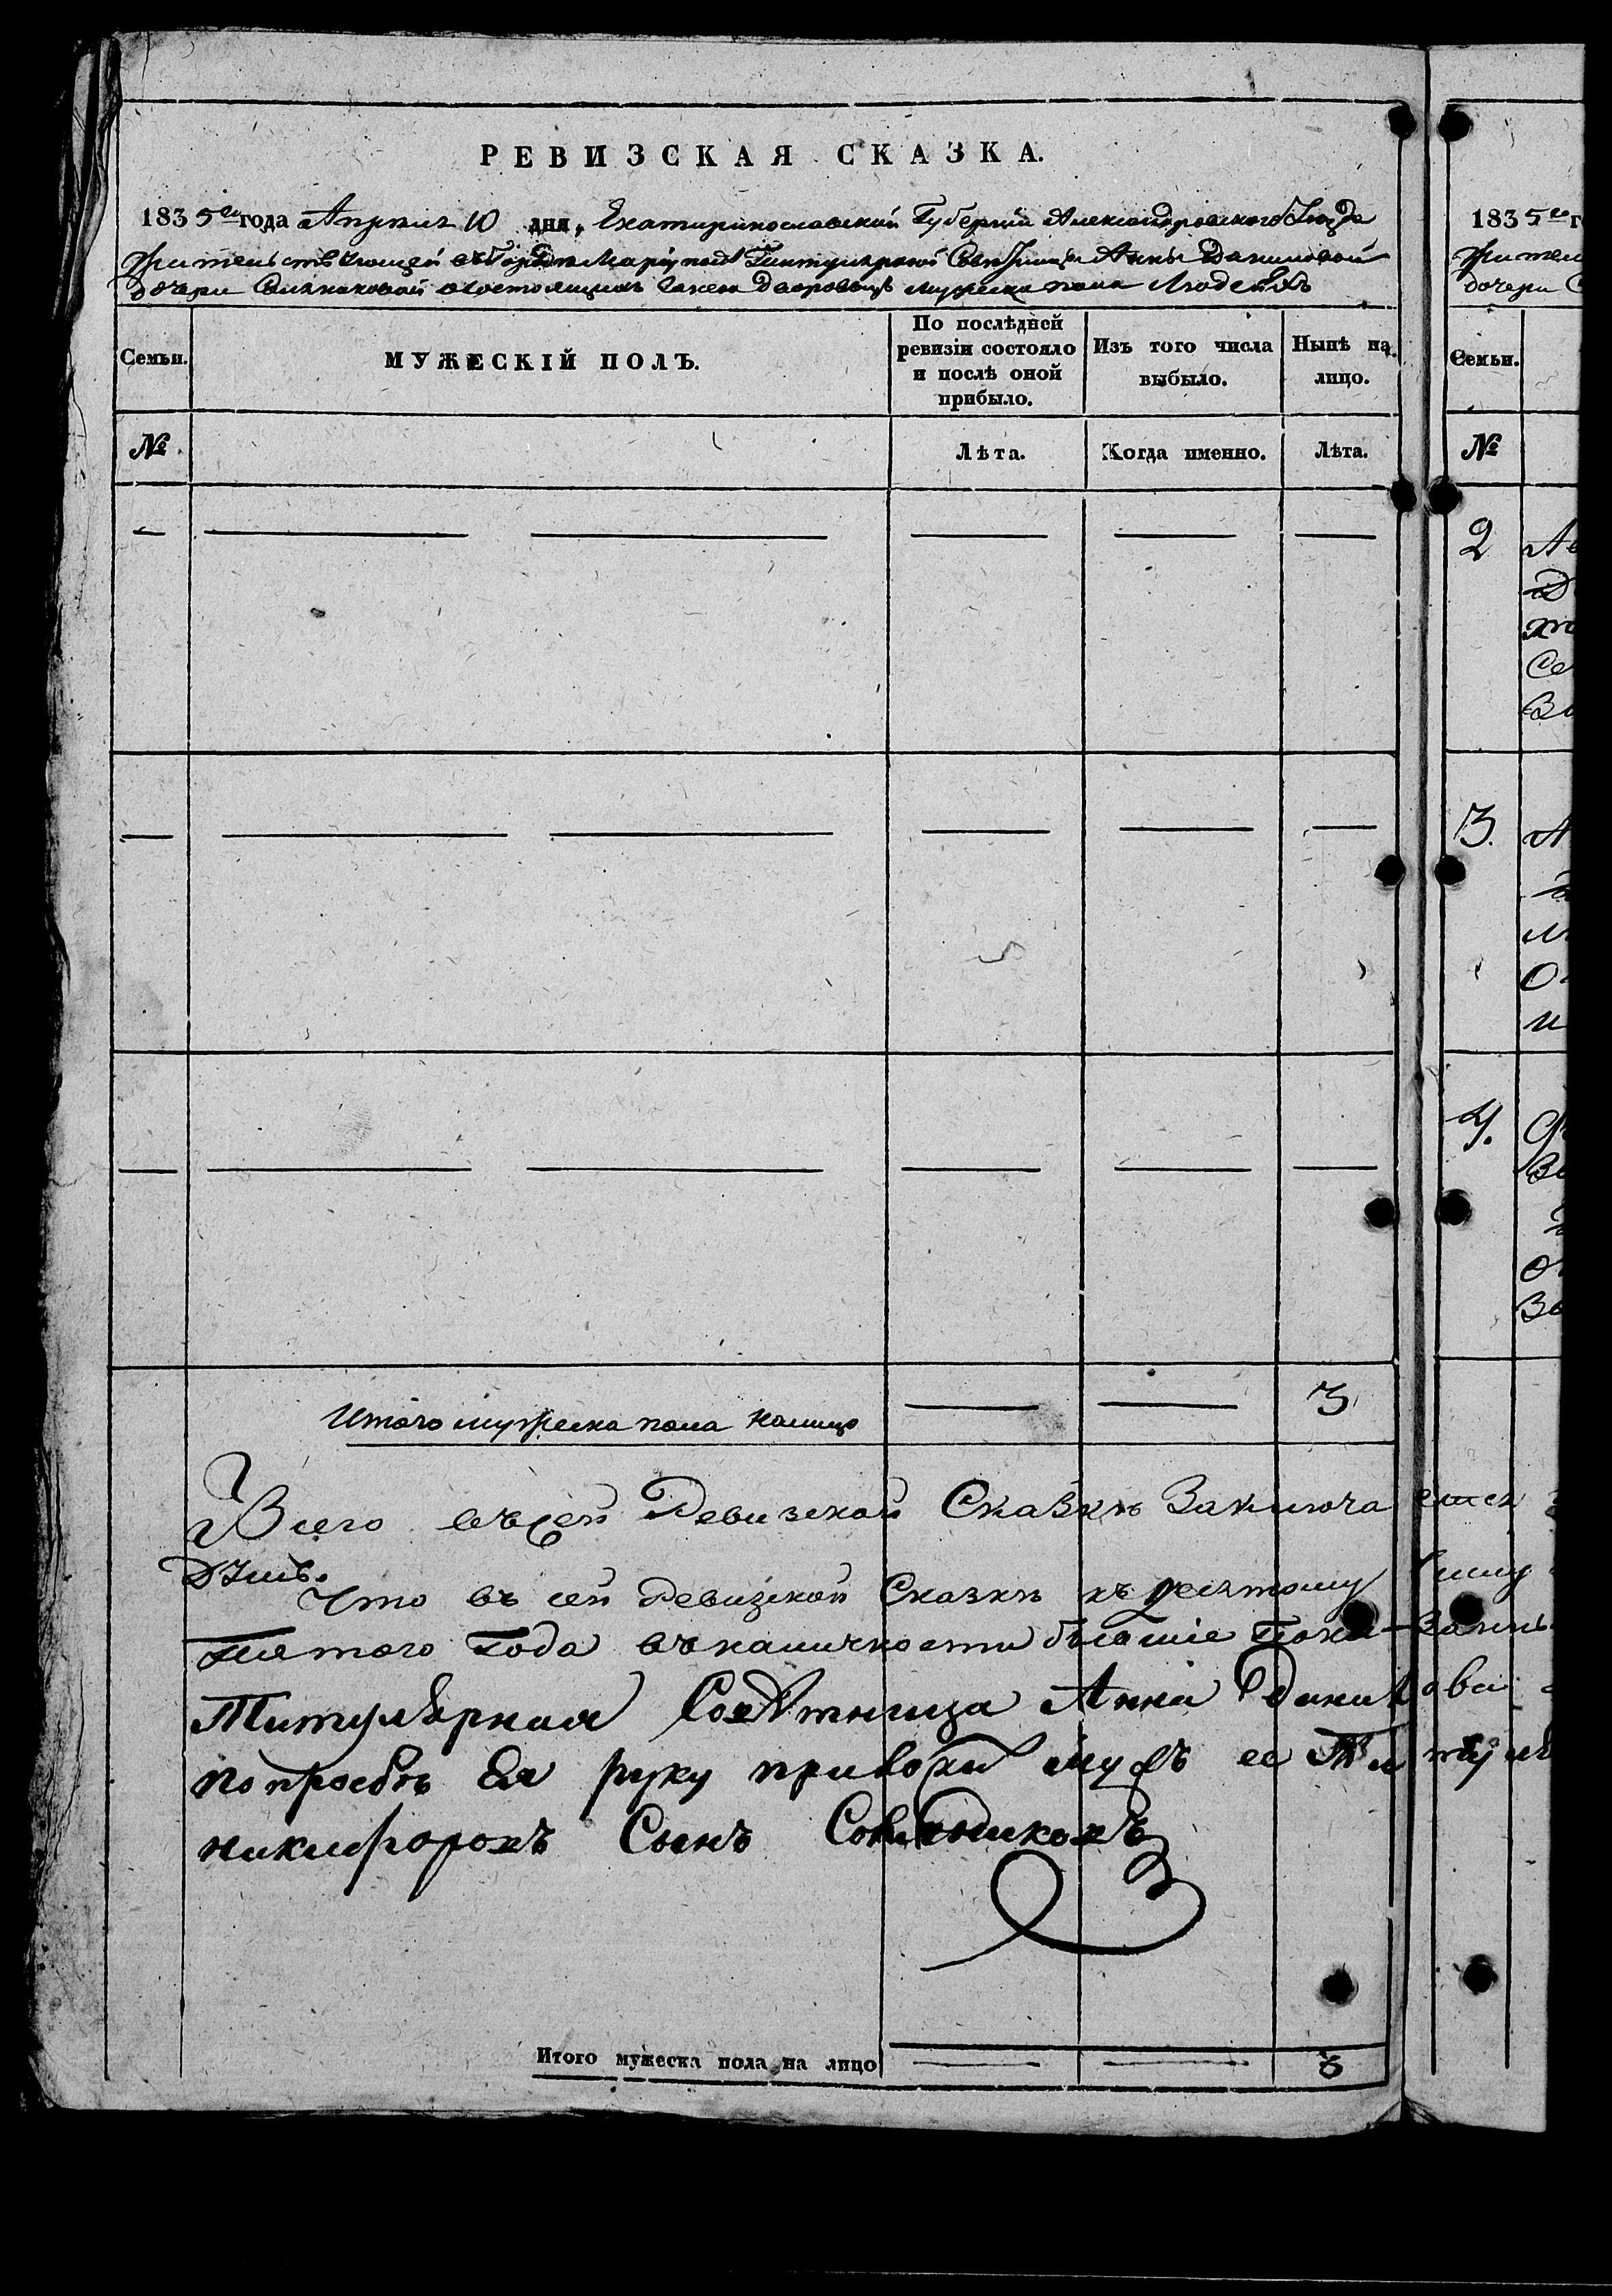 РЕВИЗСКАЯ СКАЗКА.
1835го года Апреля 10 дня, Екатеринославской Губернии Александровского Уезда
жительствующей въ Городе Мариуполе Титулярной Советницы Анны Даниловой
дочери о состоящихъ за нею дворовыхъ мужеска пола Людехъ
Семьи.
МУЖЕСКІЙ ПОЛЪ.
По послѣдней ревизіи состояло и послѣ оной прибыло.
Изъ того числа выбыло.
Нынѣ на лицо.
№
Лѣта.
Когда именно.
Лѣта.
Итого мужеска пола налицо 3
Всего въ сей Ревизской Сказкѣ Заключается
Душъ.
Что въ сей Ревизской Сказкѣ къ десятому Числу
пятого года въ наличности бывшіе показаны
Титулярная Совѣтница Анна Данилова
по прозбѣ Ея руку приложи мужъ ее Титуля
никифоровъ Сынъ
Итого мужеска пола на лицо 3
1835го г
жител
дочери
Семьи.
№
2
3.
4.